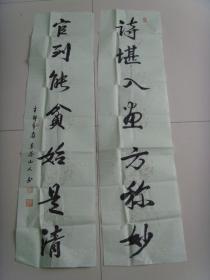 詩堪入画方称妙
官到能貪始是清